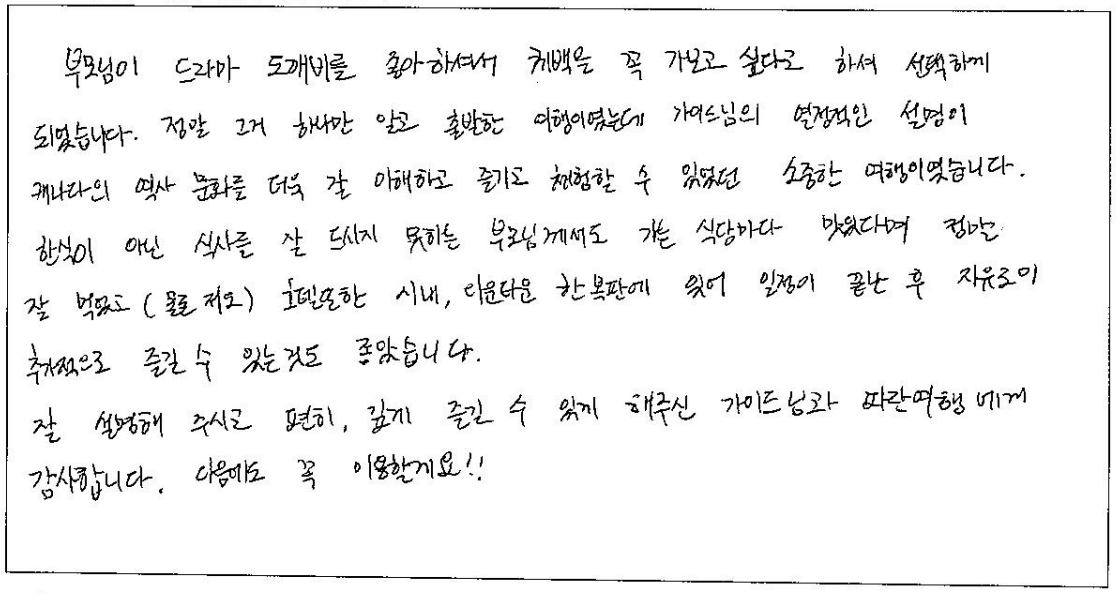 부모님이 드라마 도깨비를 좋아하셔서 퀘백을 꼭 가보고 싶다고 하셔 선택하게
되었습니다. 정말 그거 하나만 알고 출발한 여행이였는데 가이드님의 열정적인 설명이
캐나다의 역사 문화를 더욱 잘 이해하고 즐기고 체험할 수 있었던 소중한 여행이였습니다.
한식이 아닌 식사를 잘 드시지 못하는 부모님께서도 가는 식당마다 맛있다며 정말
잘 먹었고 (물론 저도) 호텔또한 시내, 다운타운 한복판에 있어 일정이 끝난 후 자유로이
추가적으로 즐길 수 있는것도 좋았습니다.
잘 설명해 주시고 편히, 깊게 즐길 수 있게 해주신 가이드님과 파란여행에게
감사합니다. 다음에도 꼭 이용할게요!!